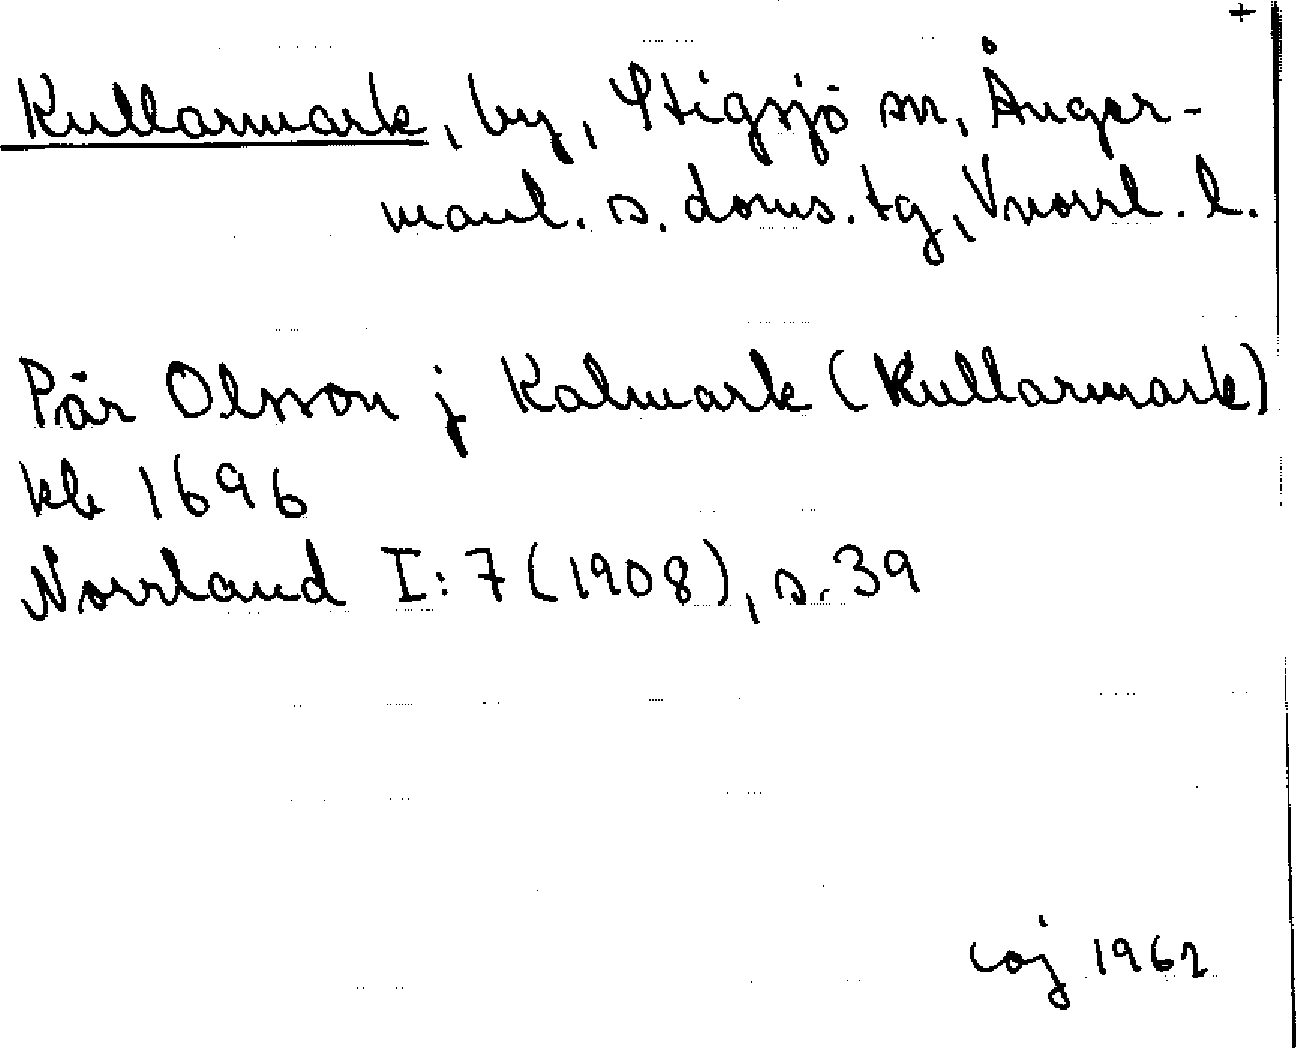 +
Kullarmark, by, Stigsjö sn, Ånger-
manl. s. doms. tg, Vnorrl. l.
Pär Olsson j Kalmark (Kullarmark)
kb 1696
Norrland I:7 (1908), s. 39
coj 1962